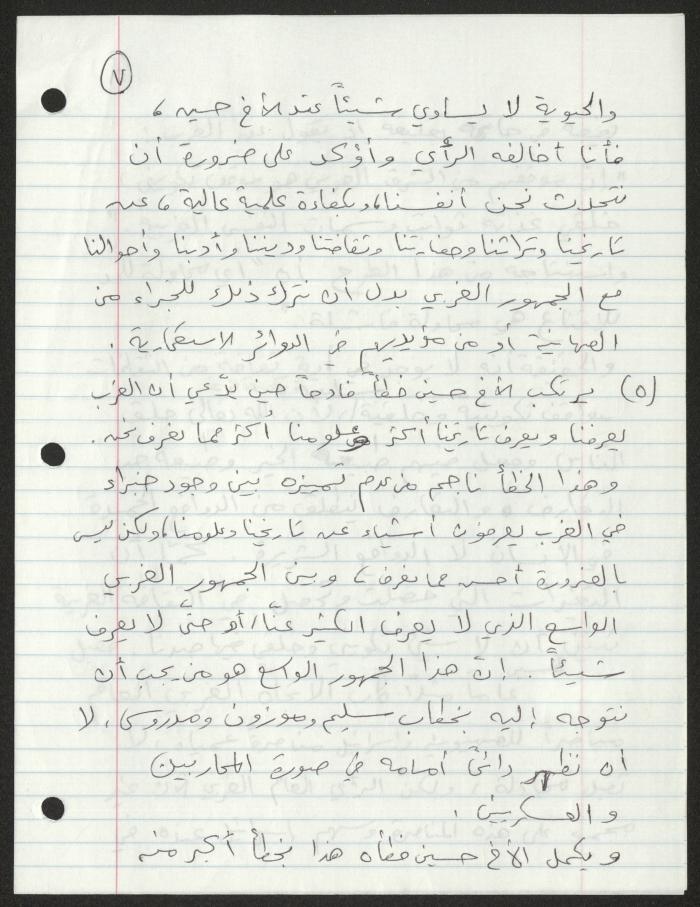 ٧
والحيوية لا يساوي شيئاً عند الأخ حسين ،
فأنا أخالفه الرأي وأؤكد على ضرورة أن
نتحدث نحن أنفسنا، وبكفاءة علمية عالية، عن
تاريخنا وتراثنا وحضارتنا وثقافتنا وديننا وأدبنا وأحوالنا
مع الجمهور الغربي بدل أن نترك ذلك للخبراء من
الصهاينة أو من مؤيديهم في الدوائر الاستعمارية .
(٥) يرتكب الأخ حسين خطأً فادحاً حين يدّعي أن الغرب
يعرفنا ويعرف تاريخنا أكثر وعلومنا أكثر مما نعرف نحن .
وهذا الخطأ ناجم من عدم تمييزه بين وجود خبراء
في الغرب يعرفون أشياء عن تاريخنا وعلومنا، ولكن ليس
بالضرورة أحسن مما نعرف، وبين الجمهور الغربي
الواسع الذي لا يعرف الكثير عنّا، أو حتّى لا يعرف
شيئاً . إنّ هذا الجمهور الواسع هو من يجب أن
نتوجه إليه بخطاب سليم وموزون ومدروس، لا
أن نظهر دائماً أمامه في صورة المحاربين
والعسكريين .
ويكمل الأخ حسين خطأه هذا بخطأ أكبر منه